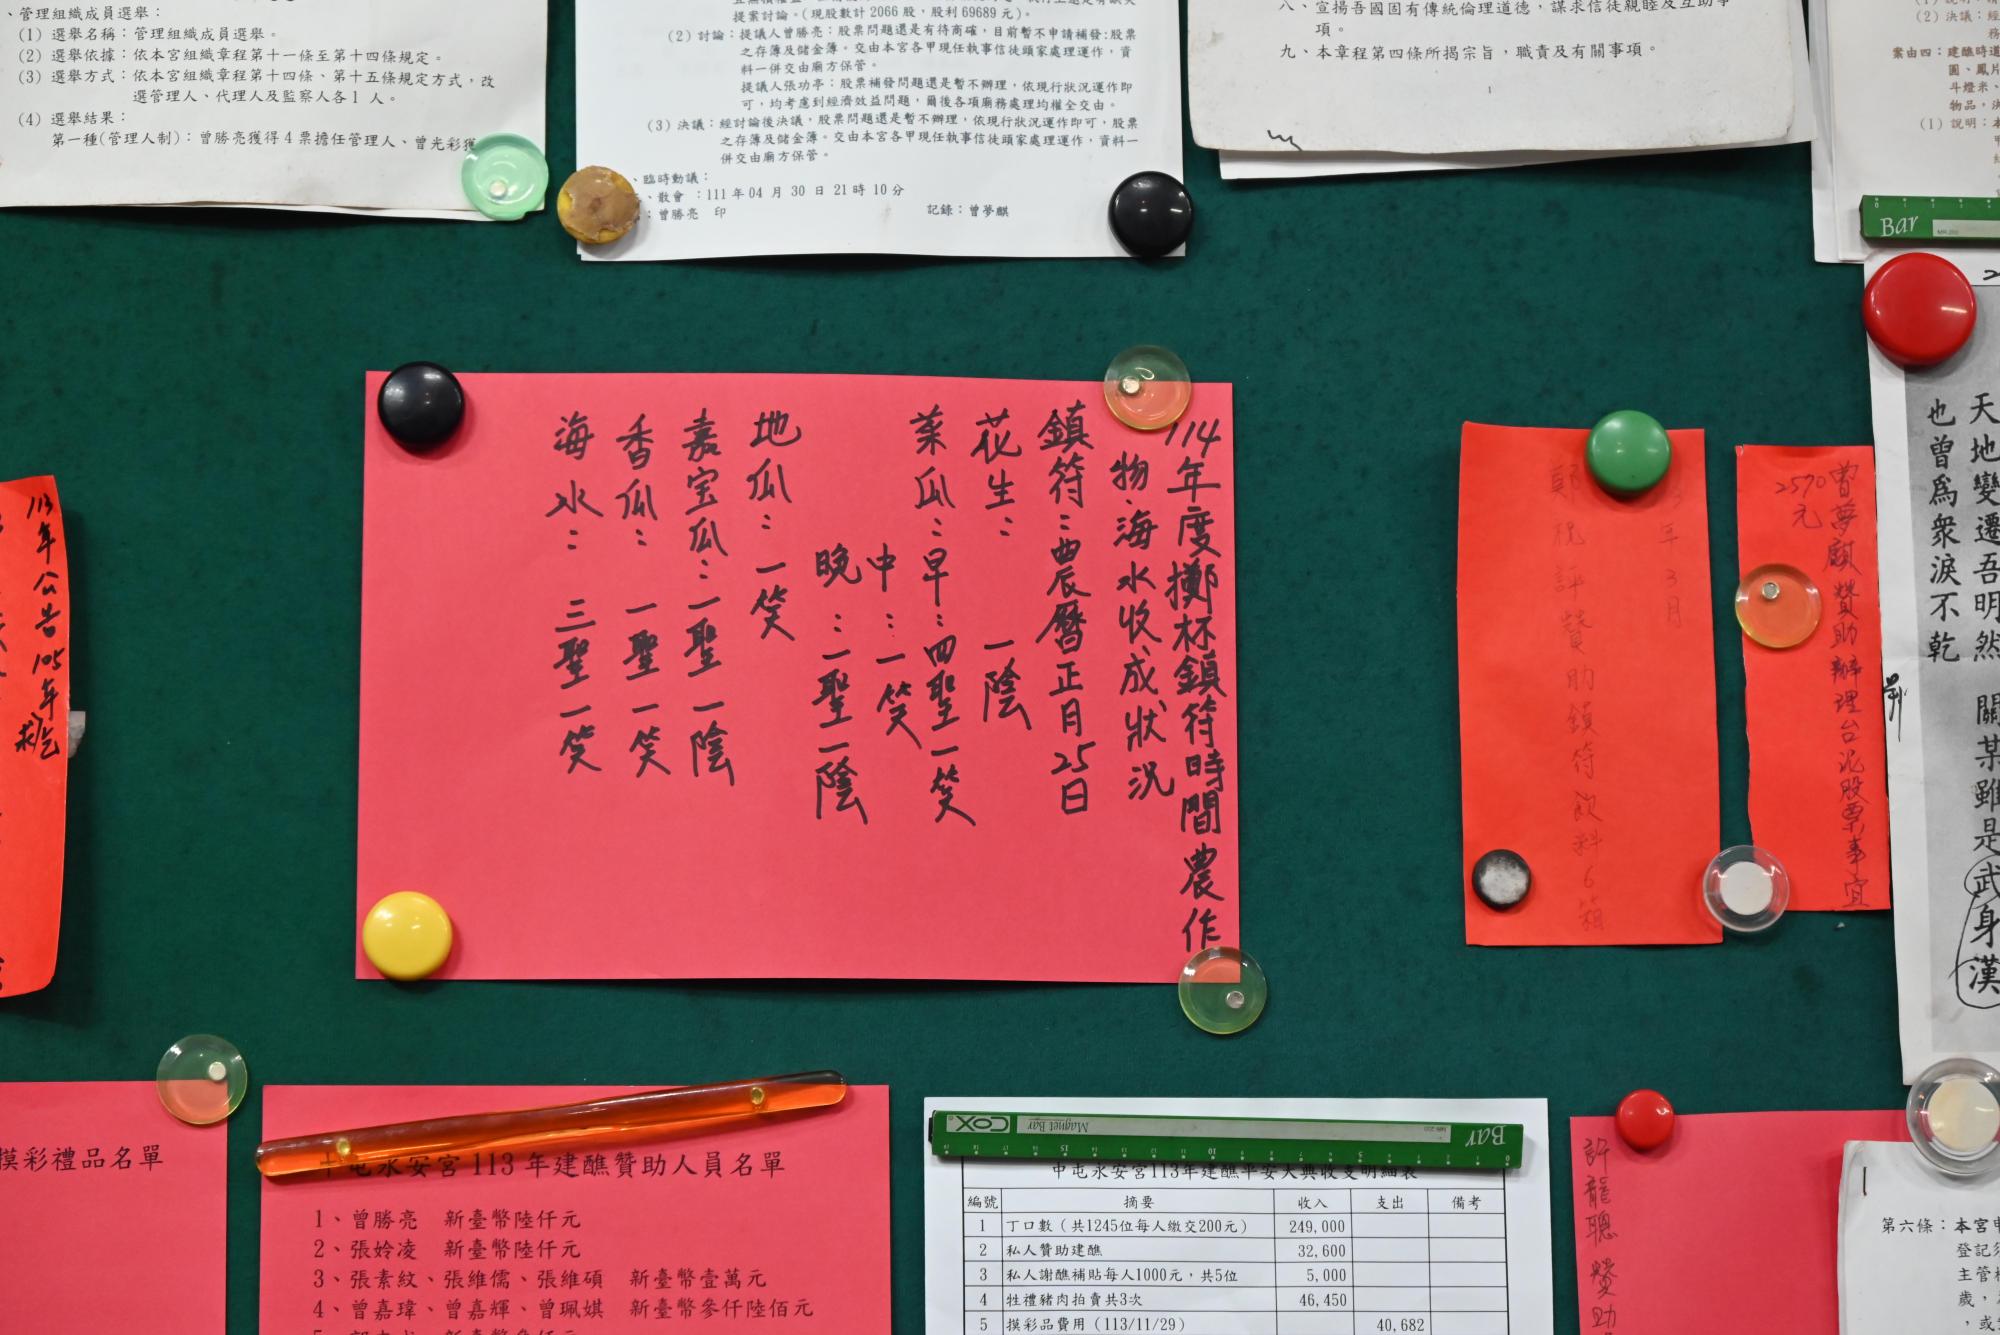 、管理組織成員選舉：
(1) 選舉名稱：管理組織成員選舉。
(2) 選舉依據：依本宮組織章程第十一條至第十四條規定。
(3) 選舉方式：依本宮組織章程第十四條、第十五條規定方式，改
選管理人、代理人及監察人各1 人。
(4) 選舉結果：
第一種(管理人制)：曾勝亮獲得 4 票擔任管理人、曾光彩獲
提案討論。(現股數計 2066 股，股利 69689 元)。
(2) 討論：提議人曾勝亮：股票問題還是有待商確，目前暫不申請補發；股票
之存簿及儲金簿。交由本宮各甲現任執事信徒頭家處理運作，資
料一併交由廟方保管。
提議人張功亭：股票補發問題還是暫不辦理，依現行狀況運作即
可，均考慮到經濟效益問題，爾後各項廟務處理均權全交由。
(3) 決議：經討論後決議，股票問題還是暫不辦理，依現行狀況運作即可，股票
之存簿及儲金簿。交由本宮各甲現任執事信徒頭家處理運作，資料一
併交由廟方保管。
、臨時動議：
、散會 ：111 年 04 月 30 日 21 時 10 分
：曾勝亮 印 記錄：曾夢麒
八、宣揚吾國固有傳統倫理道德，謀求信徒親睦及互助事
項。
九、本章程第四條所揭宗旨，職責及有關事項。
1
(2) 決議：經
案由四：建醮時道
圓、鳳片
斗燈米、
物品，決
(1) 說明：本
Bar
114年度擲杯鎮符時間農作
物.海水收成狀況
鎮符：農曆正月25日
花生： 一陰
菜瓜：早：四聖一笑
中：一笑
晚：一聖一陰
地瓜：一笑
嘉宝瓜：一聖一陰
香瓜： 一聖一笑
海水： 三聖一笑
3年3月
鄭祝評贊助鎮符飲料6箱
曾夢麒贊助辦理台泥股票事宜
2570元
天地變遷吾明然 關某雖是武身漢
也曾為衆淚不乾
113年公告105年迄
摸彩禮品名單
中屯永安宮 113 年建醮贊助人員名單
1、曾勝亮 新臺幣陸仟元
2、張姈凌 新臺幣陸仟元
3、張素紋、張維儒、張維碩 新臺幣壹萬元
4、曾嘉瑋、曾嘉輝、曾珮娸 新臺幣參仟陸佰元
COX Magnet Bar Bar
中屯永安宮113年建醮平安大典收支明細表
編號 摘要 收入 支出 備考
1 丁口數（共1245位每人繳交200元） 249,000
2 私人贊助建醮 32,600
3 私人謝醮補貼每人1000元，共5位 5,000
4 牲禮豬肉拍賣共3次 46,450
5 摸彩品費用（113/11/29） 40,682
許龍聰贊助
第六條：本宮
登記
主管
歲，
，或